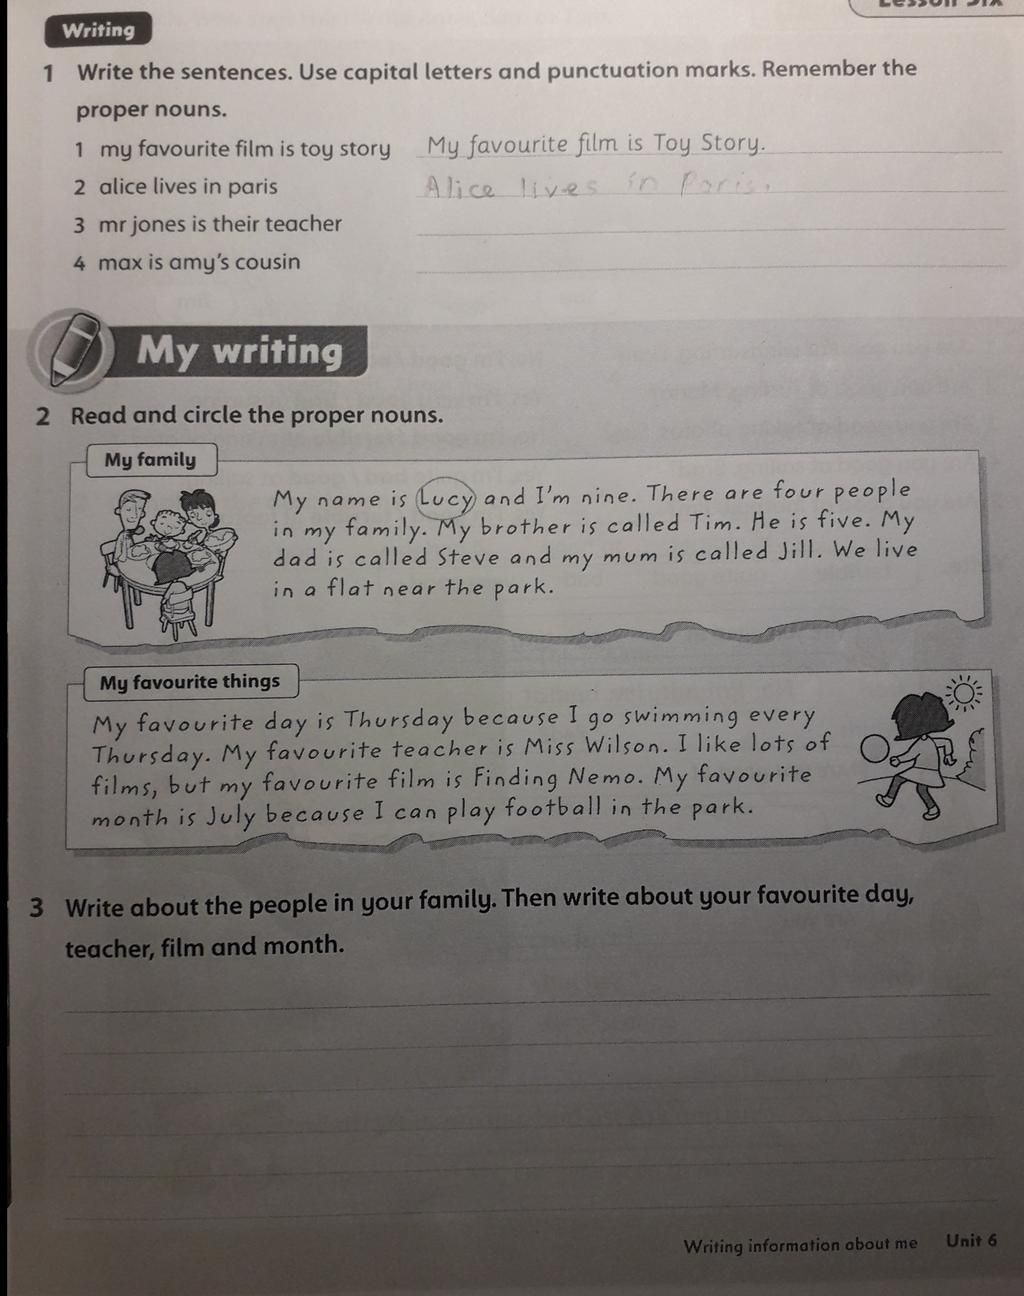 Lesson Six
Writing
1 Write the sentences. Use capital letters and punctuation marks. Remember the
proper nouns.
1 my favourite film is toy story My favourite film is Toy Story.
2 alice lives in paris Alice lives in Paris.
3 mr jones is their teacher
4 max is amy's cousin
My writing
2 Read and circle the proper nouns.
My family
My name is Lucy and I'm nine. There are four people
in my family. My brother is called Tim. He is five. My
dad is called Steve and my mum is called Jill. We live
in a flat near the park.
My favourite things
My favourite day is Thursday because I go swimming every
Thursday. My favourite teacher is Miss Wilson. I like lots of
films, but my favourite film is Finding Nemo. My favourite
month is July because I can play football in the park.
3 Write about the people in your family. Then write about your favourite day,
teacher, film and month.
Writing information about me Unit 6